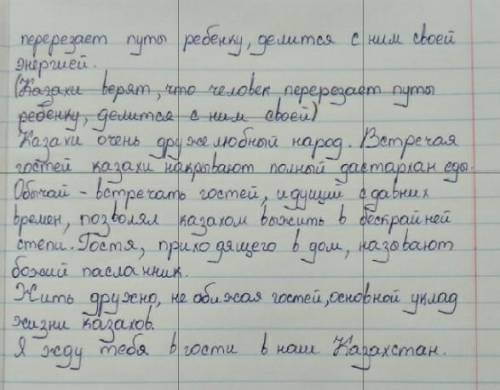 перерезает путы ребенку, делится с ним своей
энергией.
(Казахи верят, что человек перерезает путы
ребенку, делится с ним своей)
Казахи очень дружелюбный народ. Встречая
гостей казахи накрывают полный дастархан еды.
Обычай - встречать гостей, идущий с давних
времен, позволял казахом выжить в бескрайней
степи. Гостя, приходящего в дом, называют
божий пасланник.
Жить дружно, не абижая гостей, основной уклад
жизни казахов.
Я жду тебя в гости в наш Казахстан.